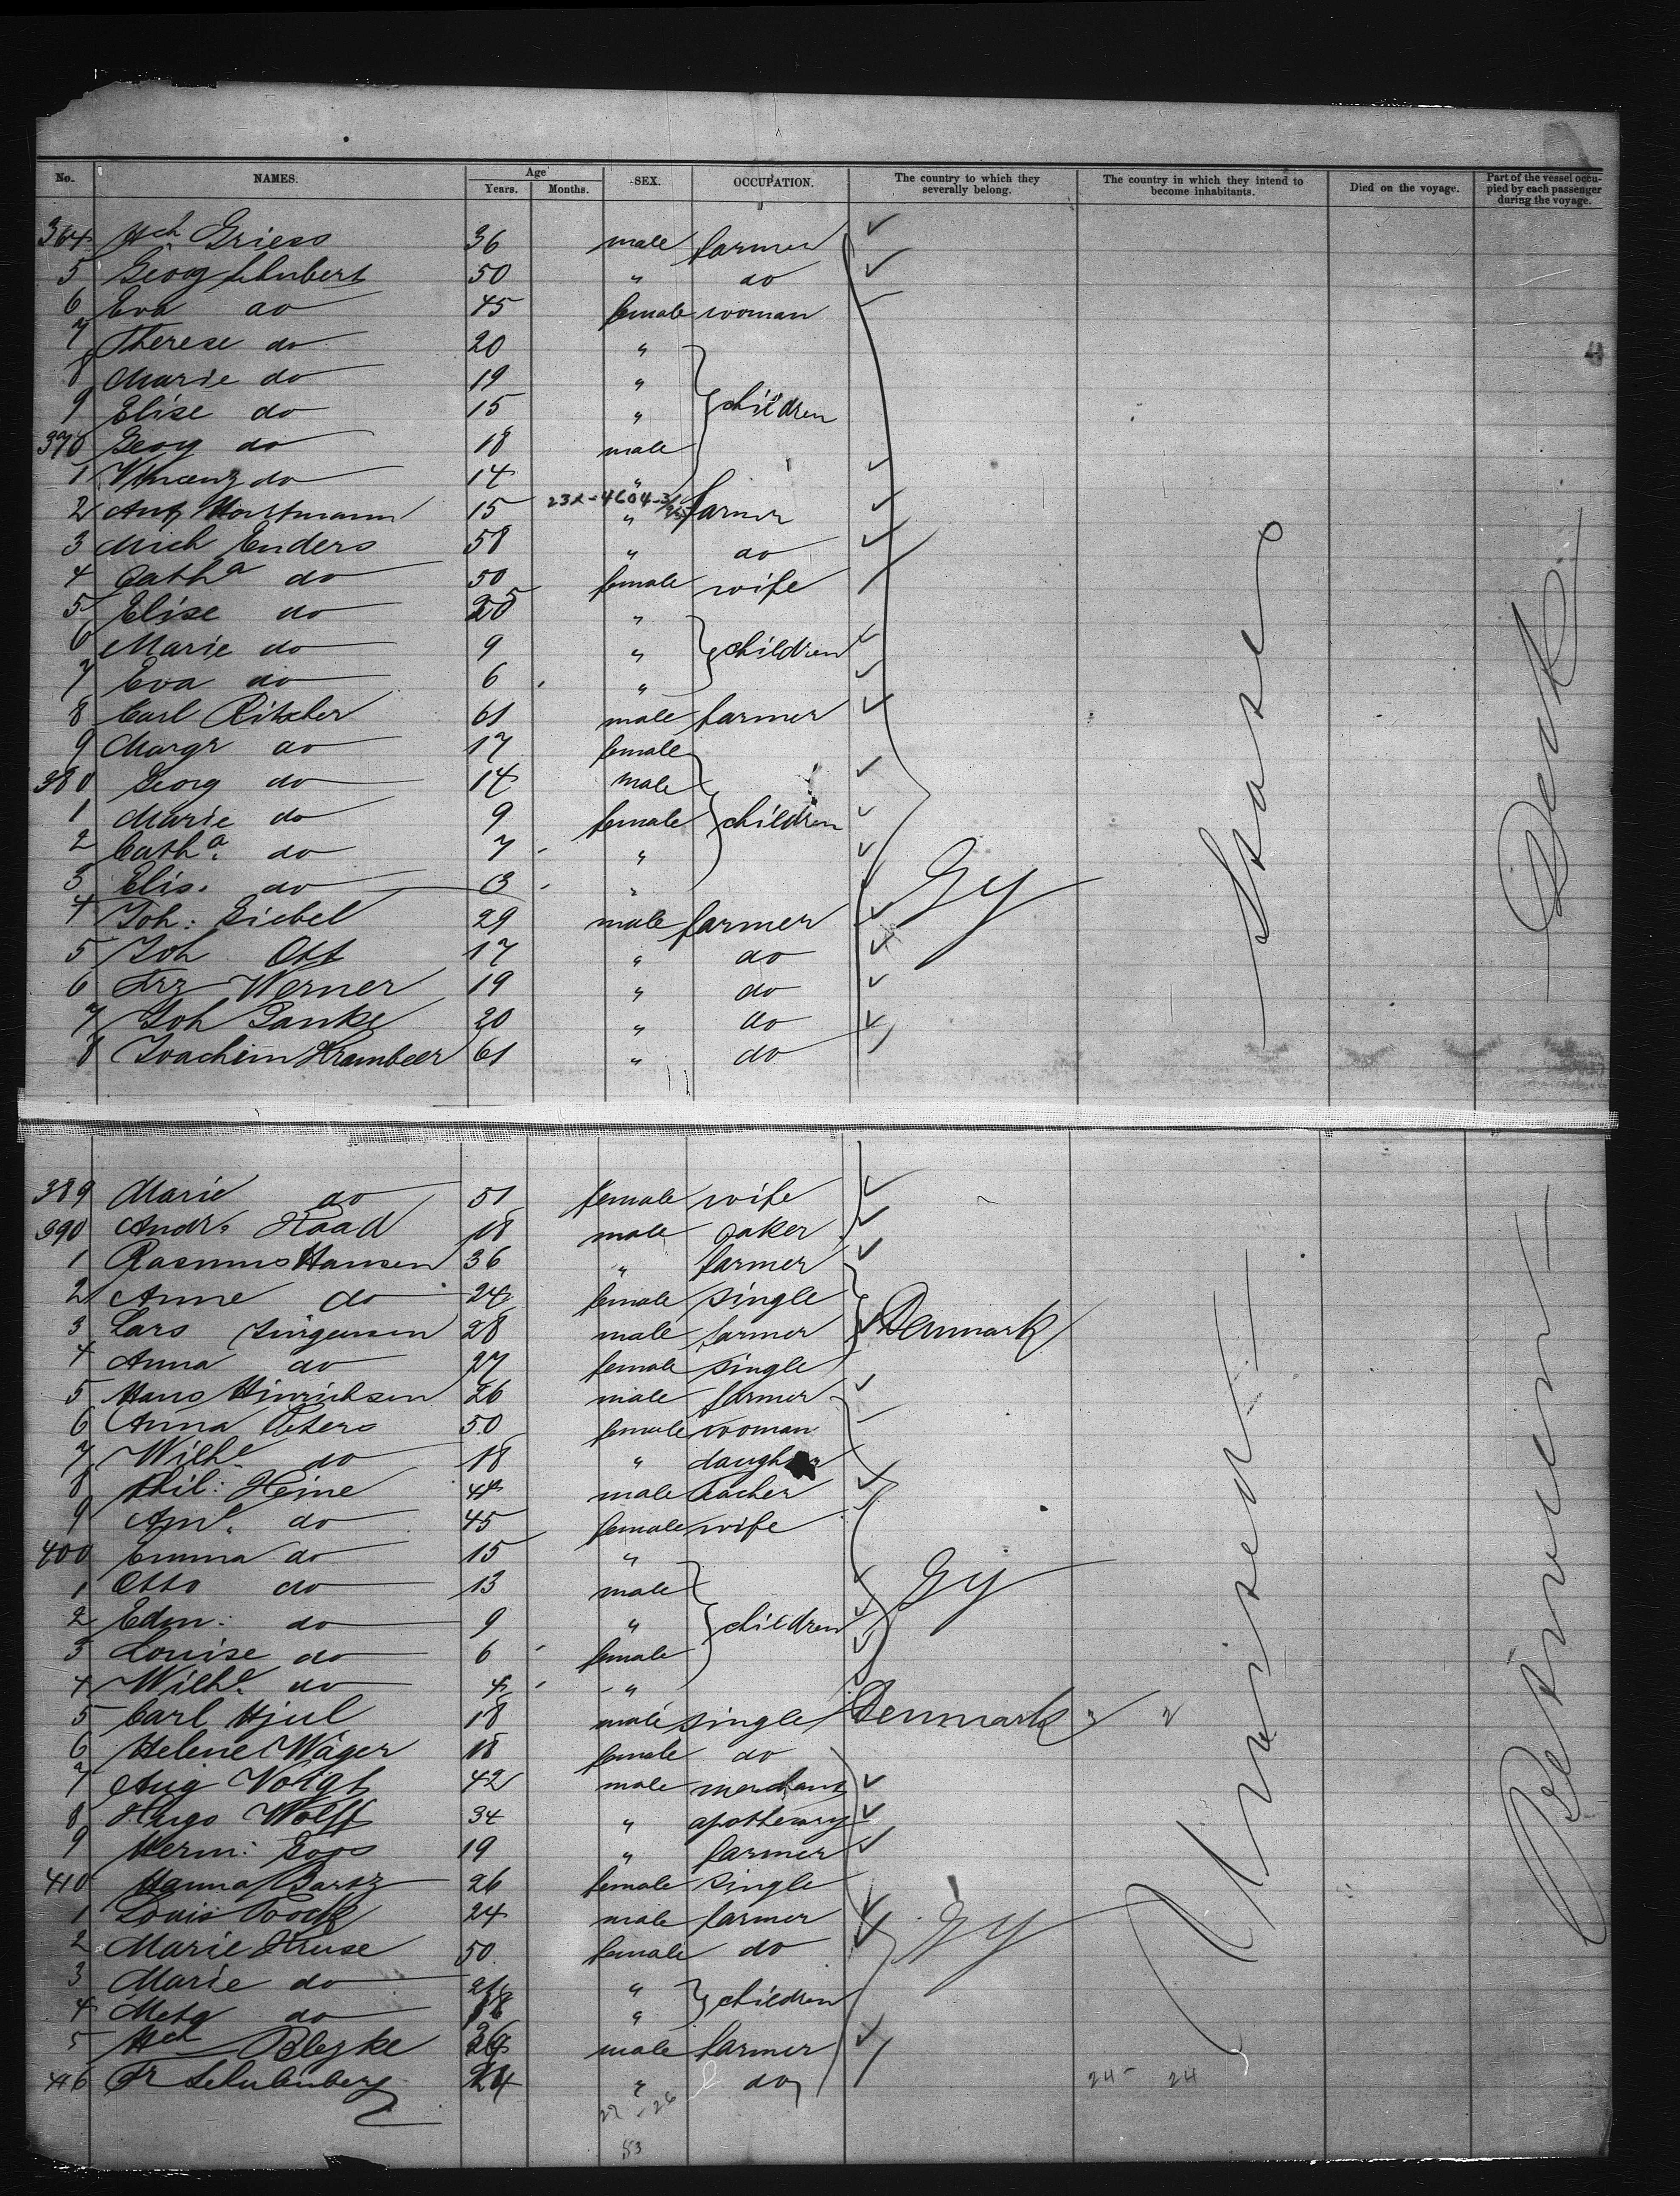 No. NAMES. Age Years. Months. SEX. OCCUPATION. The country to which they severally belong. The country in which they intend to become inhabitants. Died on the voyage. Part of the vessel occupied by each passenger during the voyage.
364 Hch Griess 36 male farmer
5 Georg Schubert 50 " do
6 Eva do 45 female woman
7 Therese do 20 "
8 Marie do 19 "
9 Elise do 15 " children
370 Georg do 18 male
1 Vincenz do 14 "
232-4604-3/
2 Ant Horstmann 15 " farmer
3 Mich Enders 58 " do
4 Catha do 50 female wife
5 Elise do 20 "
6 Marie do 9 " children
7 Eva do 6 "
8 Carl Ritscher 61 male farmer
9 Margr do 17 female
380 Georg do 14 male
1 Marie do 9 female children
2 Catha. do 7 "
3 Elis. do 3 " Gy
4 Joh: Giebel 29 male farmer
5 Joh Ott 17 " do
6 Frz Werner 19 " do
7 Joh Panke 20 " do
8 Joachim Krambeer 61 " do
States
Deck
389 Marie do 51 female wife
390 Andr. Haad 18 male baker
1 Rasmus Hansen 36 " farmer
2 Anne do 24 female single
3 Lars Jürgensen 28 male farmer Denmark
4 Anna do 27 female single
5 Hans Hinrichsen 26 male farmer
6 Anna Peters 50 female woman
7 Wilhe. do 18 " daughter
8 Phil: Heine 44 male teacher
9 Ame. do 45 female wife
400 Emma do 15 "
1 Otto do 13 male Gy
2 Edm: do 9 " children
3 Louise do 6 female
4 Wilhe. do 4 "
5 Carl Hjul 18 male single Denmark
6 Helene Wäger 18 female do
7 Aug Voigt 42 male merchant
8 Hugo Wolff 34 " apothecary
9 Herm: Goos 19 " farmer
410 Hanna Bartz 26 female single
1 Louis 24 male farmer Gy
2 Marie Kruse 50 female do
3 Marie do "
4 Meta do 18 " children
5 Hch male farmer
416 Fr Schulenberg 24 " do
24 24
53
United
Between